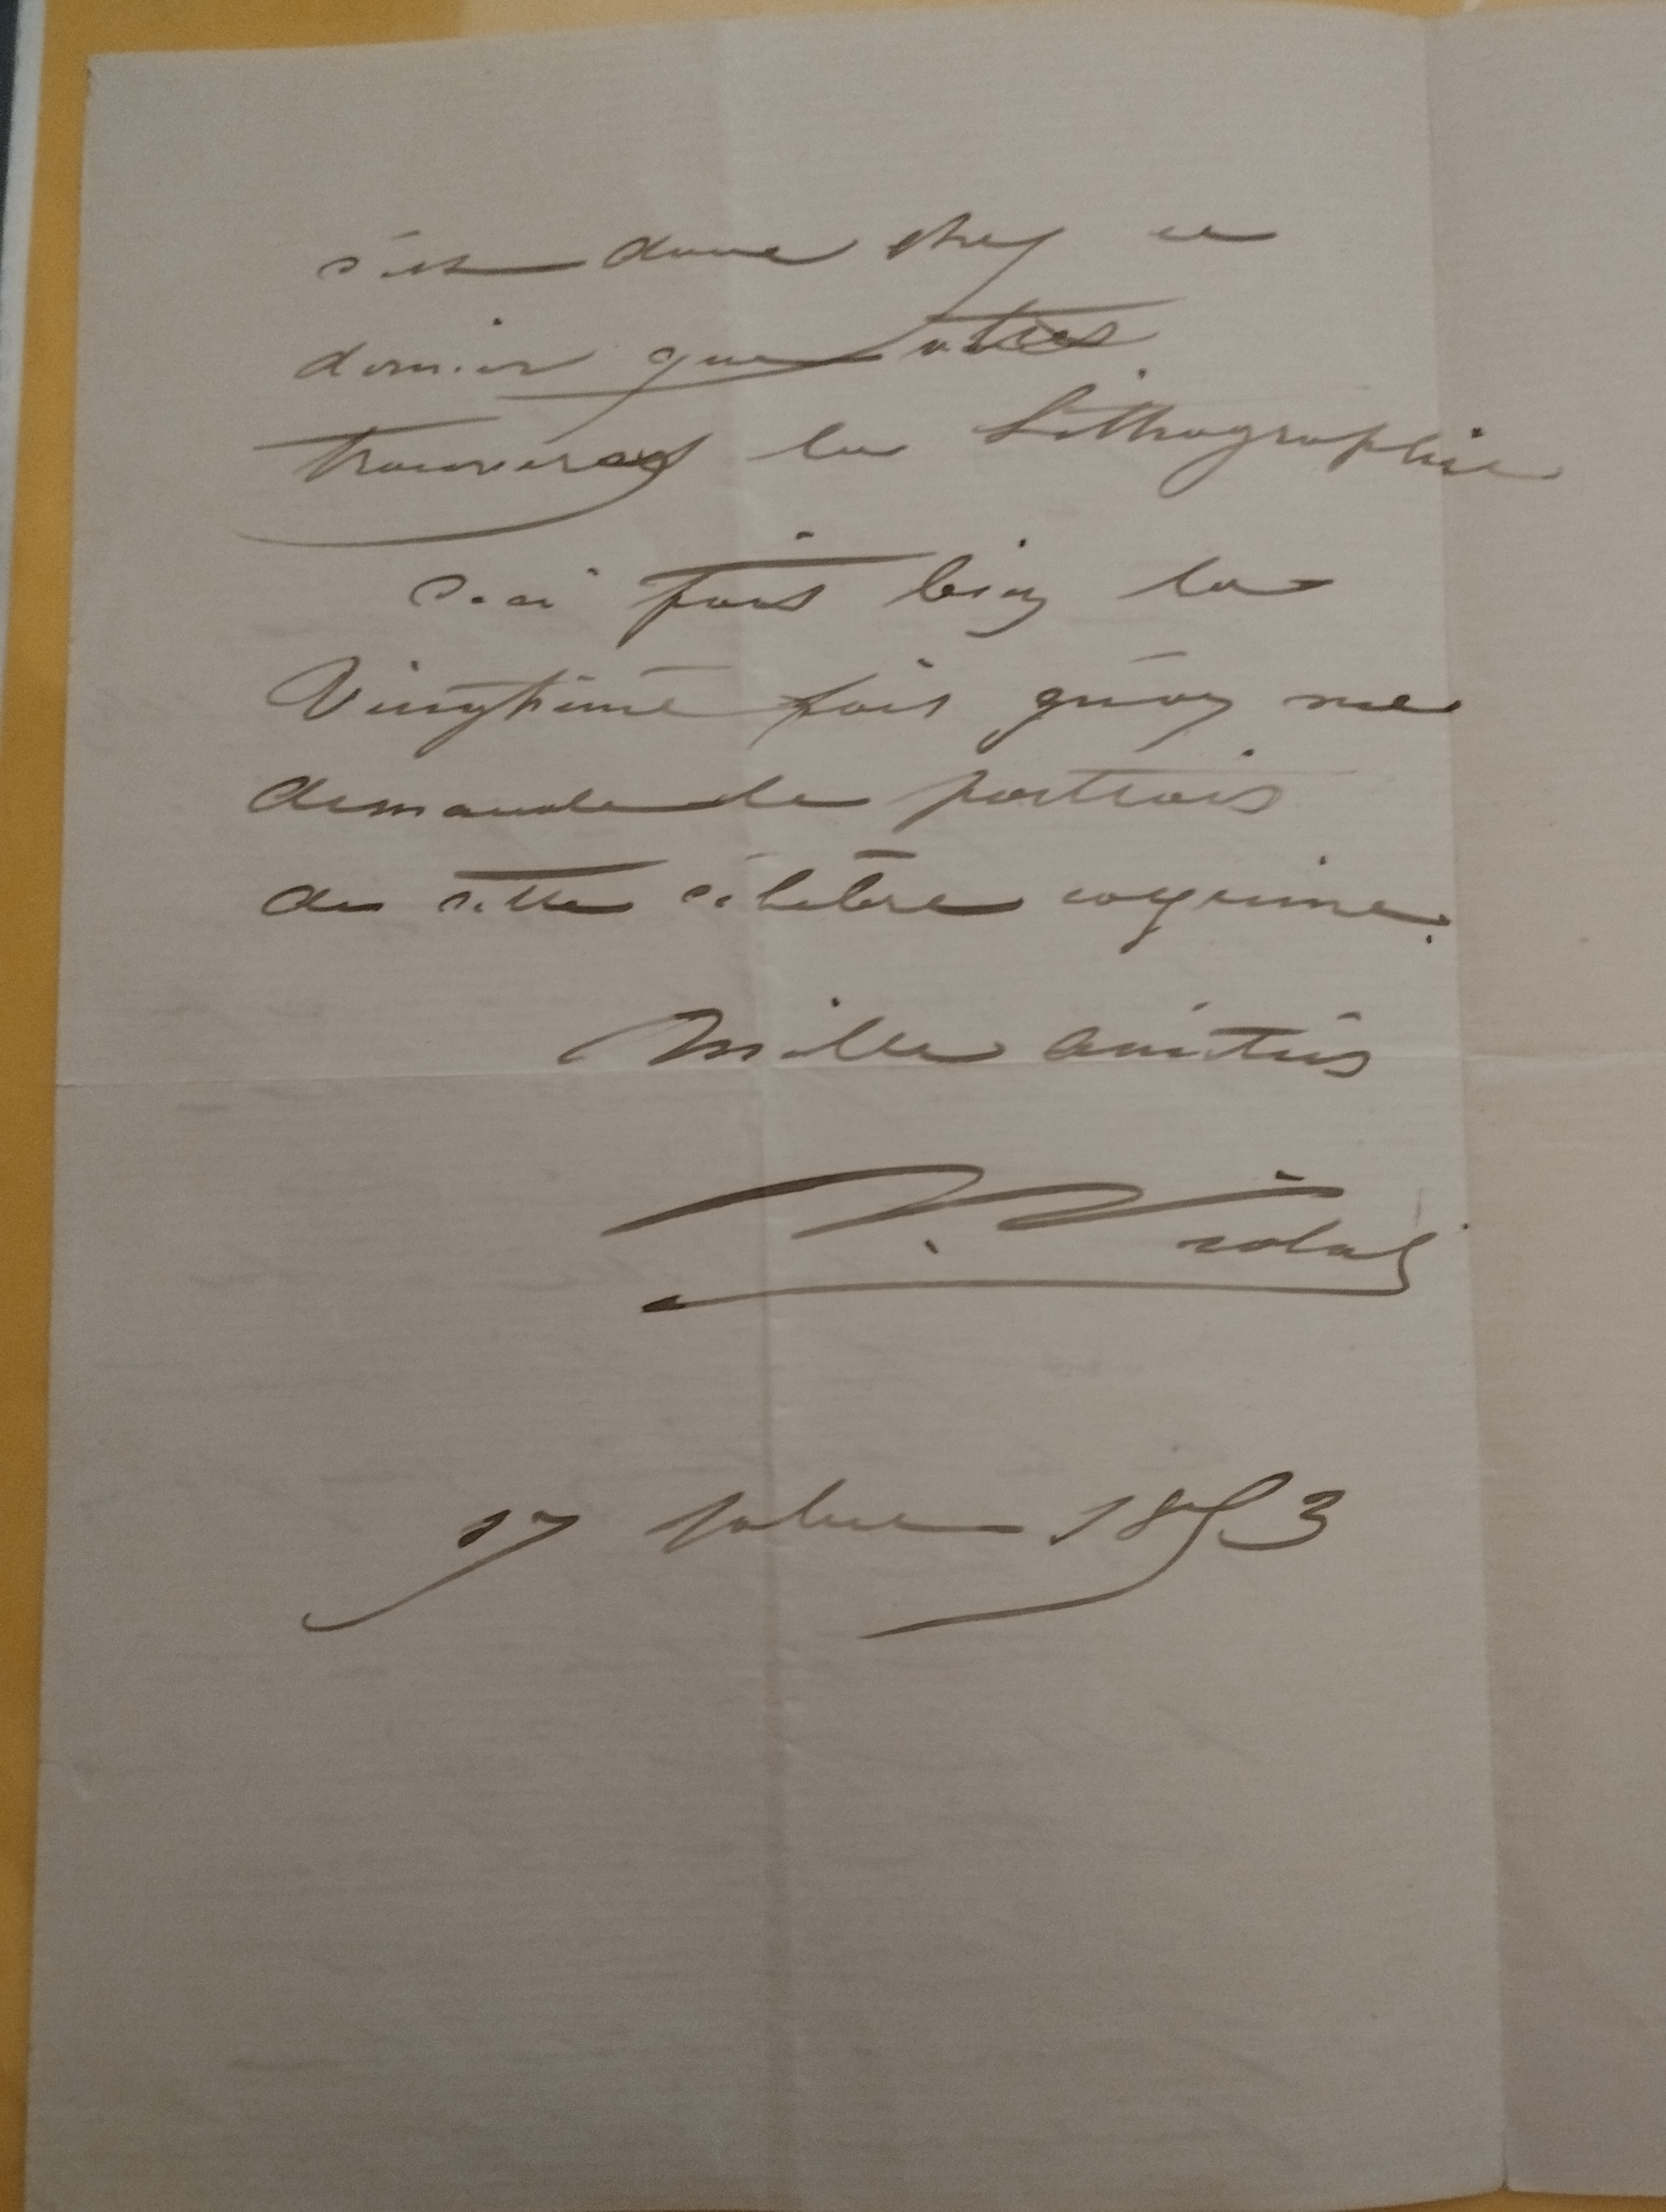 c'est donc chez ce
dernier que vous
trouverez la Lithographie
Ceci fait bien la
Vingtième fois qu'on me
demande le portrait
de cette célèbre coquine.
Mille amitiés
17 1853